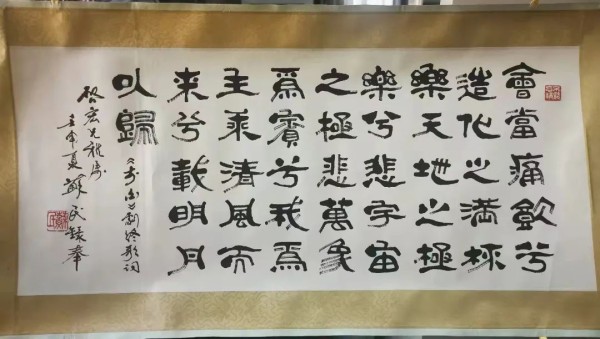 會當痛飲兮
造化之滿杯
樂天地之極
樂兮悲宇宙
之極悲萬象
爲賓兮我爲
主乘清風而
来兮載明月
以歸
《李白》劇終歌詞
啓宏兄雅
壬午夏 蘇民録奉